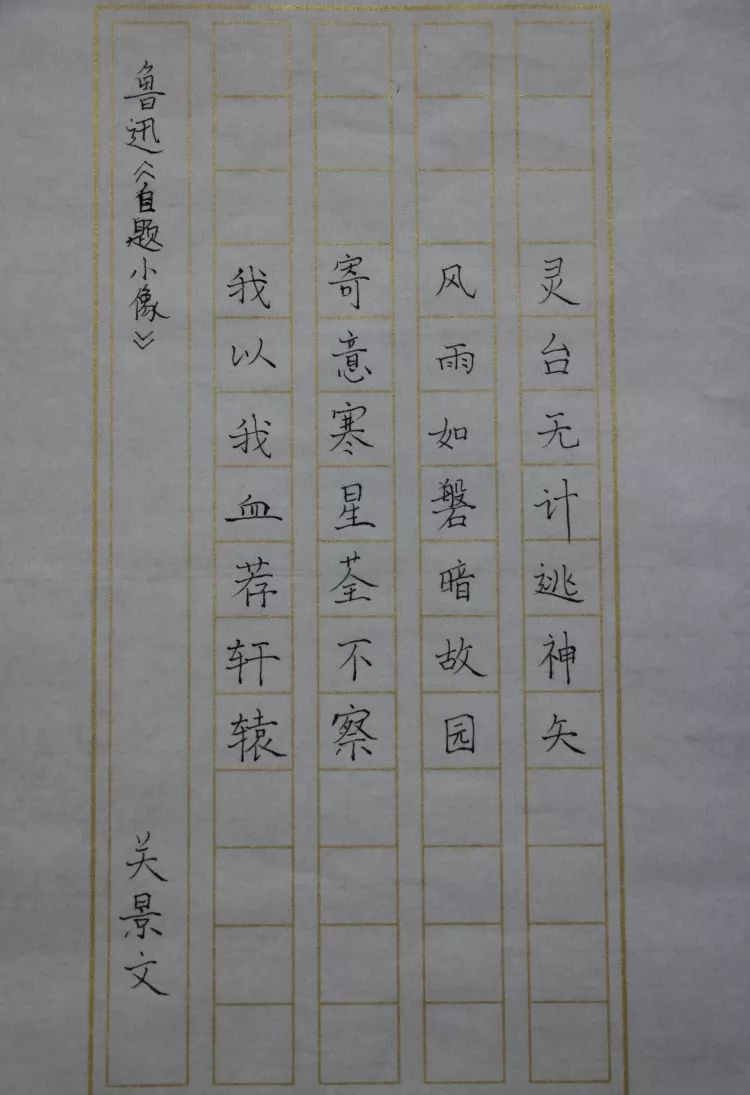 灵台无计逃神矢
风雨如磐暗故园
寄意寒星荃不察
我以我血荐轩辕
鲁迅《自题小像》
关景文